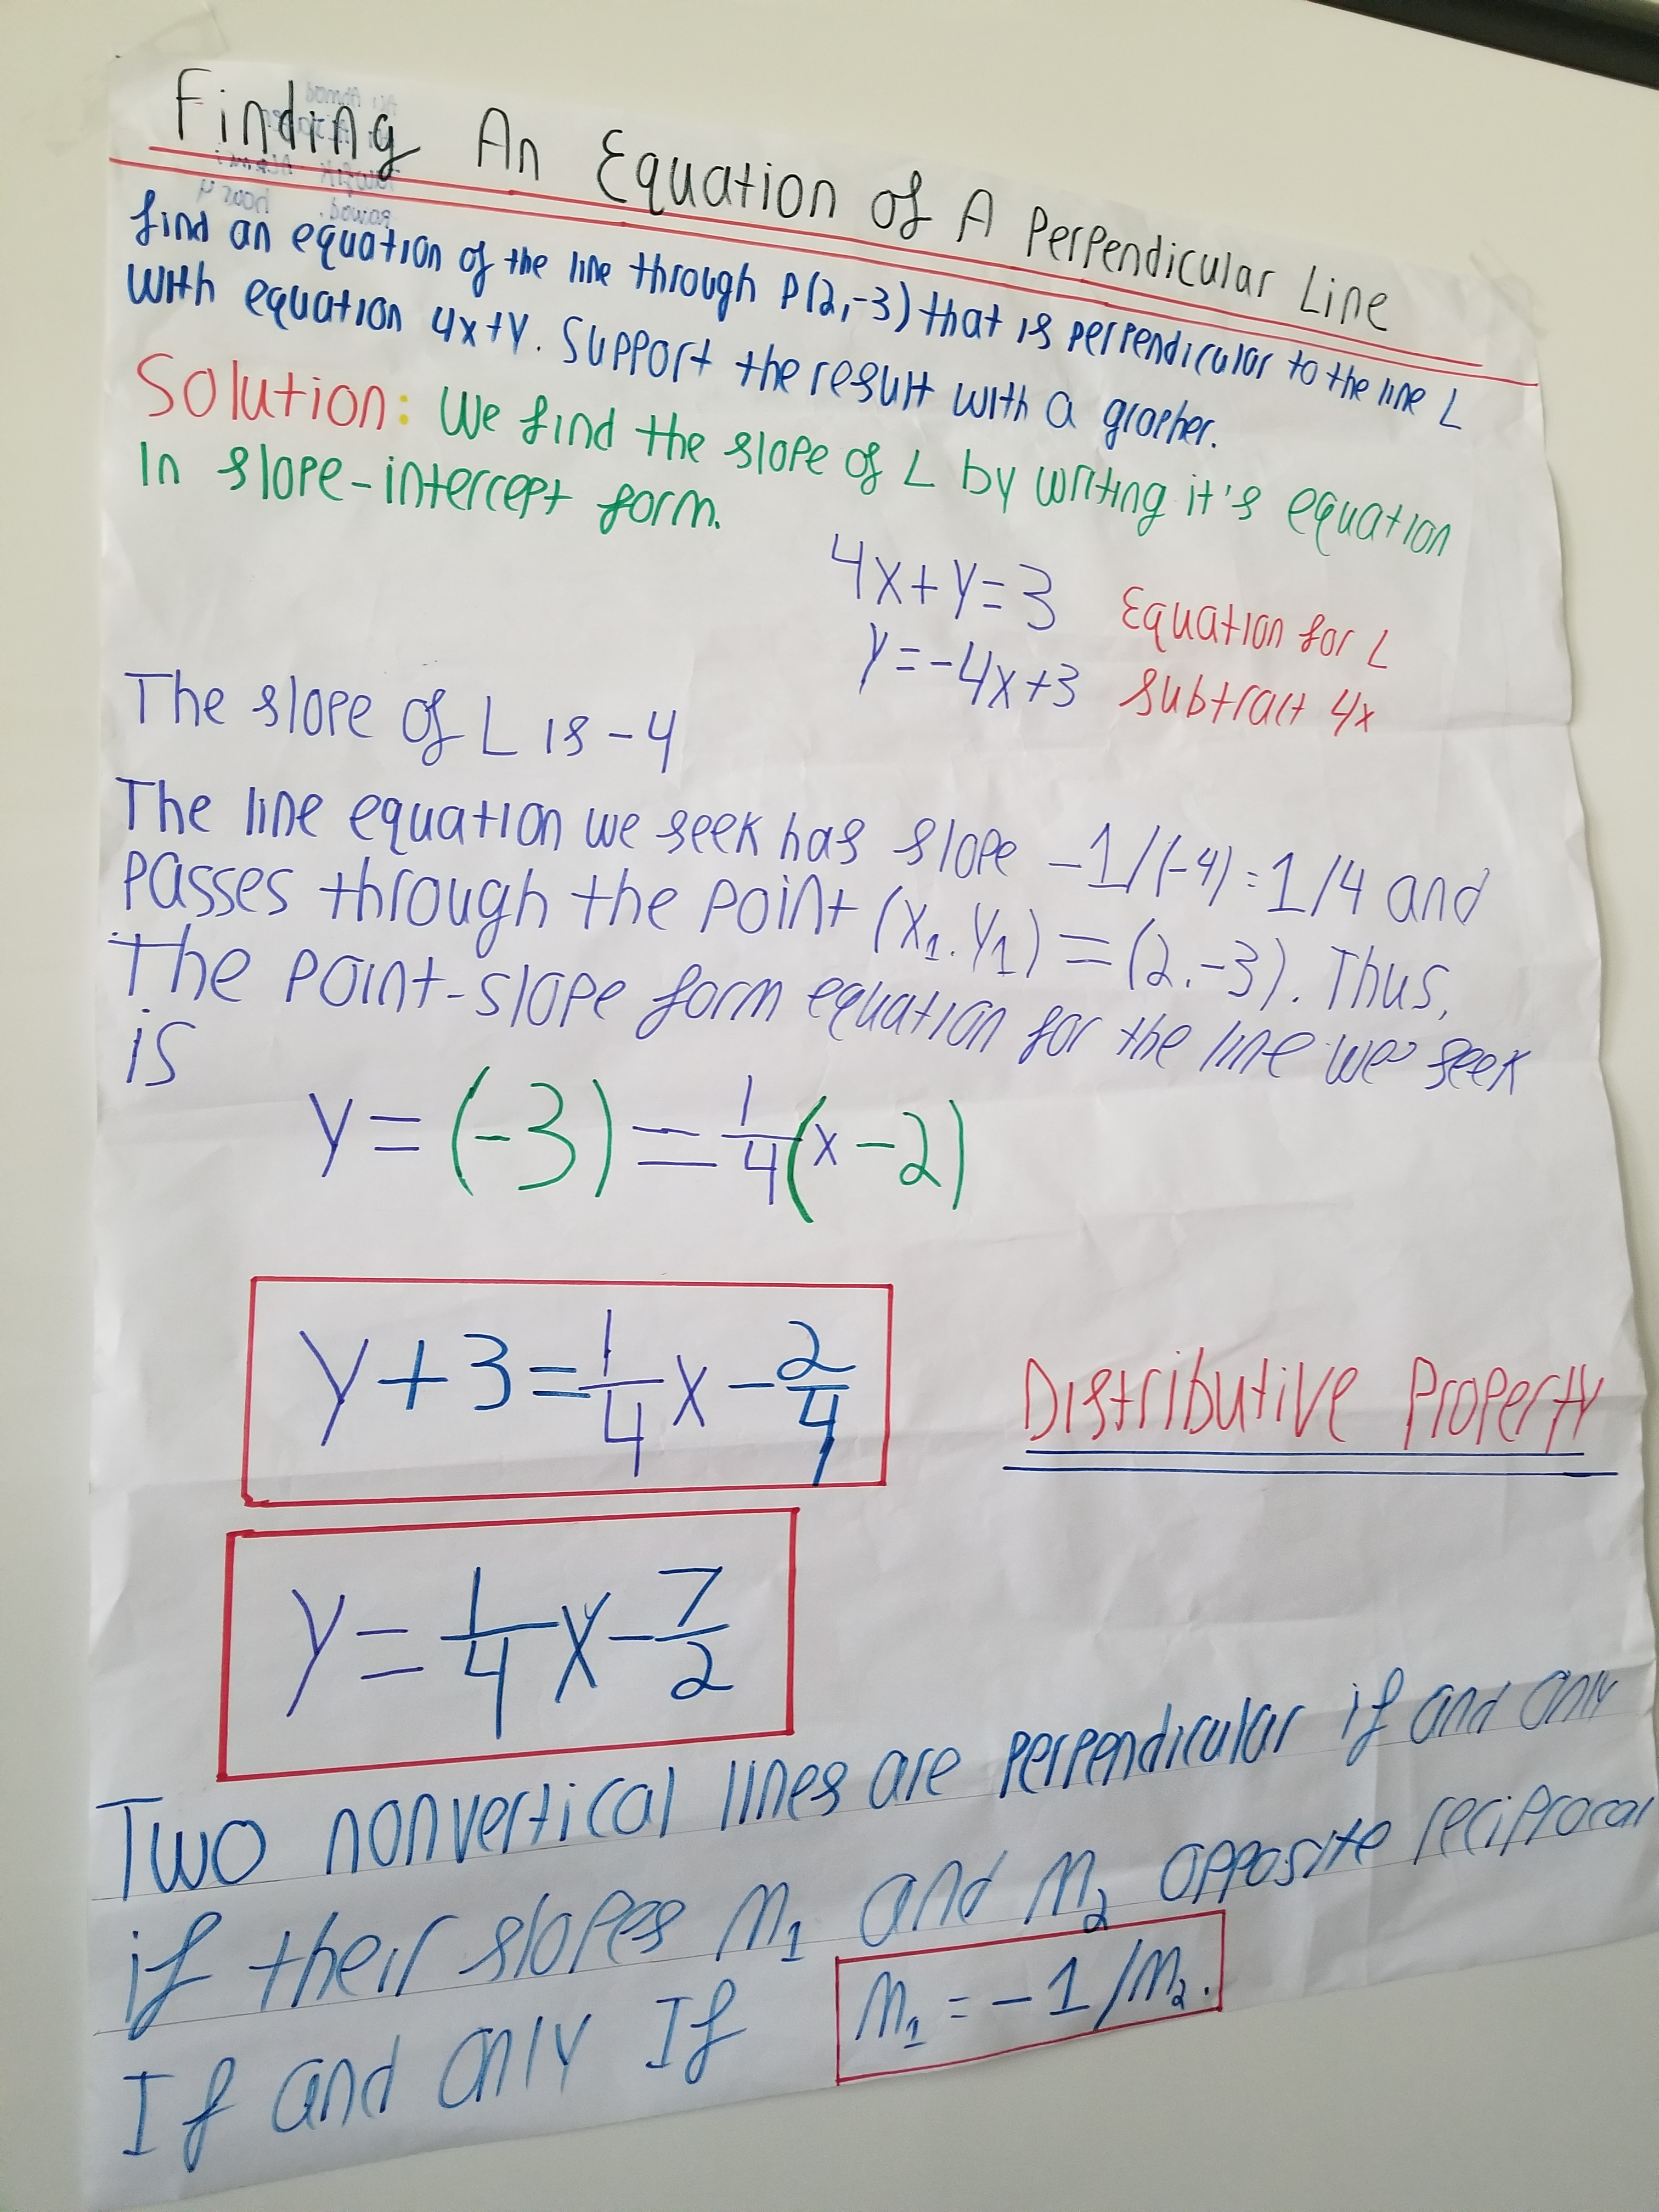 Finding An Equation of A Perpendicular Line
find an equation of the line through P(2,-3) that is perpendicular to the line L
with equation 4x+y. Support the result with a grapher.
Solution: We find the slope of L by writing it's equation
In slope-intercept form.
4x+y=3 Equation for L
y=-4x+3 subtract 4x
The slope of L is -4
The line equation we seek has slope -1/(-4)=1/4 and
passes through the point (x₁.y₁)=(2.-3). Thus,
The point-slope form equation for the line we seek
is
y=(-3)=1/4(x-2)
y+3=1/4x-2/4 Distributive Property
y=1/4x-7/2
Two nonvertical lines are perpendicular if and only
if their slopes m₁ and m₂ opposite reciprocal
If and only If m₁=-1/m₂.